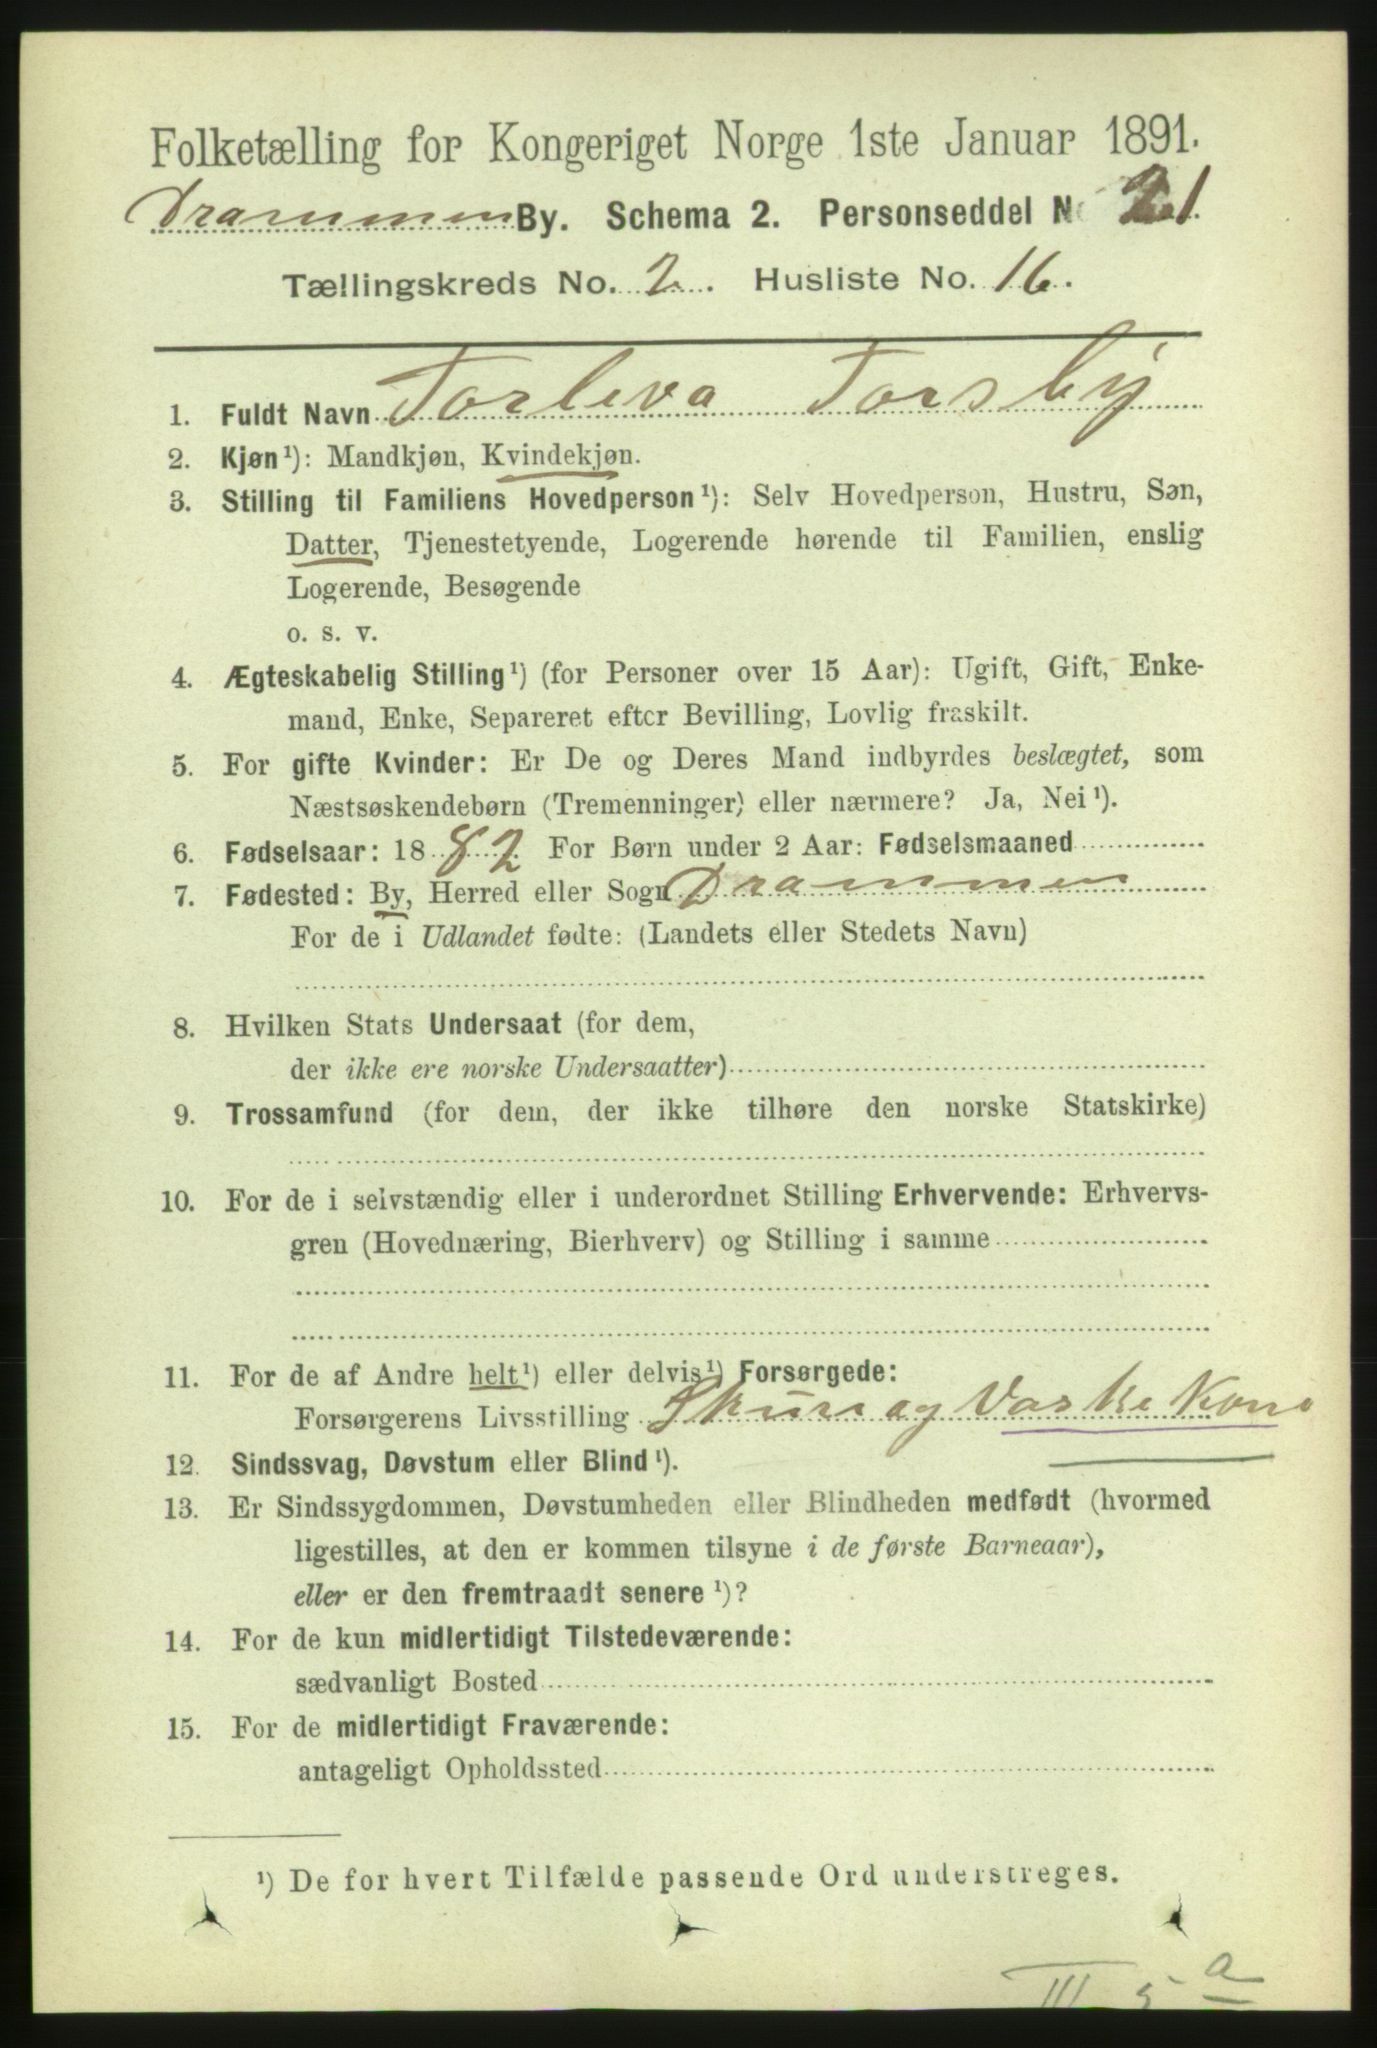 Folketælling for Kongeriget Norge 1ste Januar 1891.
Drammen By. Schema 2. Personseddel No 21
Tællingskreds No. 2. Husliste No. 16.
1. Fuldt Navn Torleva Torsby
2. Kjøn¹): Mandkjøn, Kvindekjøn.
3. Stilling til Familiens Hovedperson¹): Selv Hovedperson, Hustru, Søn,
Datter, Tjenestetyende, Logerende hørende til Familien, enslig
Logerende, Besøgende
o. s. v.
4. Ægteskabelig Stilling¹) (for Personer over 15 Aar): Ugift, Gift, Enke-
mand, Enke, Separeret efter Bevilling, Lovlig fraskilt.
5. For gifte Kvinder: Er De og Deres Mand indbyrdes beslægtet, som
Næstsøskendebørn (Tremenninger) eller nærmere? Ja, Nei¹).
6. Fødselsaar: 1882 For Børn under 2 Aar: Fødselsmaaned
7. Fødested: By, Herred eller Sogn Drammen
For de i Udlandet fødte: (Landets eller Stedets Navn)
8. Hvilken Stats Undersaat (for dem,
der ikke ere norske Undersaatter)
9. Trossamfund (for dem, der ikke tilhøre den norske Statskirke)
10. For de i selvstændig eller i underordnet Stilling Erhvervende: Erhvervs-
gren (Hovednæring, Bierhverv) og Stilling i samme
11. For de af Andre helt¹) eller delvis¹) Forsørgede:
Forsørgerens Livsstilling Skure og Vaske Kone
12. Sindssvag, Døvstum eller Blind¹).
13. Er Sindssygdommen, Døvstumheden eller Blindheden medfødt (hvormed
ligestilles, at den er kommen tilsyne i de første Barneaar),
eller er den fremtraadt senere¹)?
14. For de kun midlertidigt Tilstedeværende:
sædvanligt Bosted
15. For de midlertidigt Fraværende:
antageligt Opholdssted
¹) De for hvert Tilfælde passende Ord understreges.
III 5 a